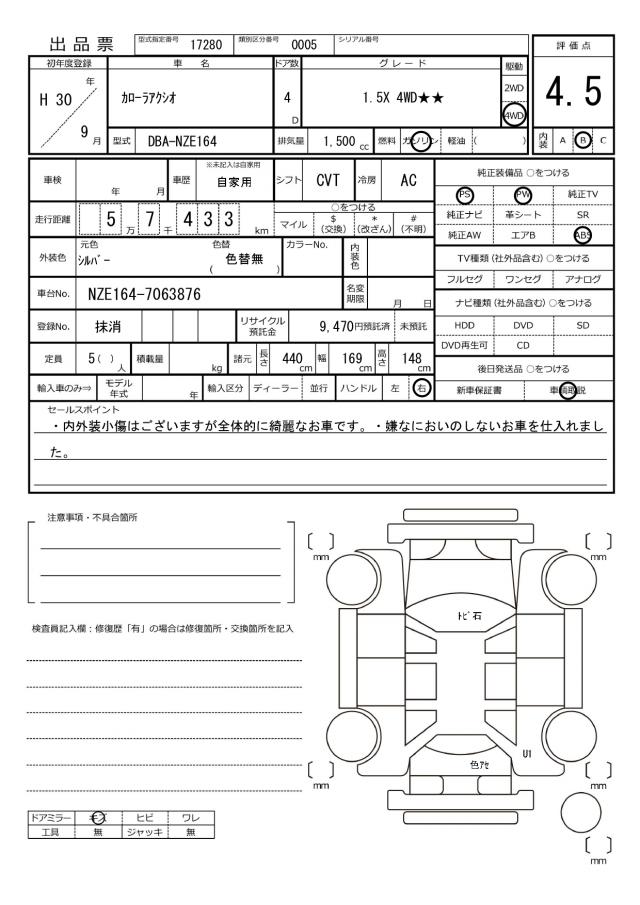 出品票 型式指定番号 17280 類別区分番号 0005 シリアル番号
評価点
4.5
初年度登録 車名 ドア数 グレード 駆動
H 30 年 / 9 月
カローラアクシオ 4 D 1.5X 4WD★★ 2WD 4WD
型式 DBA-NZE164 排気量 1,500 cc 燃料 ガソリン 軽油 ( ) 内装 A B C
車検 年 月 車歴 ※未記入は自家用 自家用 シフト CVT 冷房 AC
純正装備品 ○をつける
PS PW 純正TV
純正ナビ 革シート SR
純正AW エアB ABS
走行距離 5 万 7 千 4 3 3 km ○をつける
マイル $ (交換) * (改ざん) # (不明)
外装色 元色 シルバー 色替 ( 色替無 ) カラーNo. 内装色
TV種類 (社外品含む) ○をつける
フルセグ ワンセグ アナログ
車台No. NZE164-7063876 名変期限 月 日
ナビ種類 (社外品含む) ○をつける
登録No. 抹消 リサイクル預託金 9,470円預託済 未預託
HDD DVD SD
DVD再生可 CD
定員 5 ( ) 人 積載量 kg 諸元 長さ 440 cm 幅 169 cm 高さ 148 cm
後日発送品 ○をつける
輸入車のみ⇒ モデル年式 年 輸入区分 ディーラー 並行 ハンドル 左 右
新車保証書 車輌取説
セールスポイント
・内外装小傷はございますが全体的に綺麗なお車です。・嫌なにおいのしないお車を仕入れまし
た。
注意事項・不具合箇所
検査員記入欄：修復歴「有」の場合は修復箇所・交換箇所を記入
ドアミラー キズ ヒビ ワレ
工具 無 ジャッキ 無
〔 〕 mm
〔 〕 mm
トビ石
U1
色アセ
〔 〕 mm
〔 〕 mm
〔 〕 mm